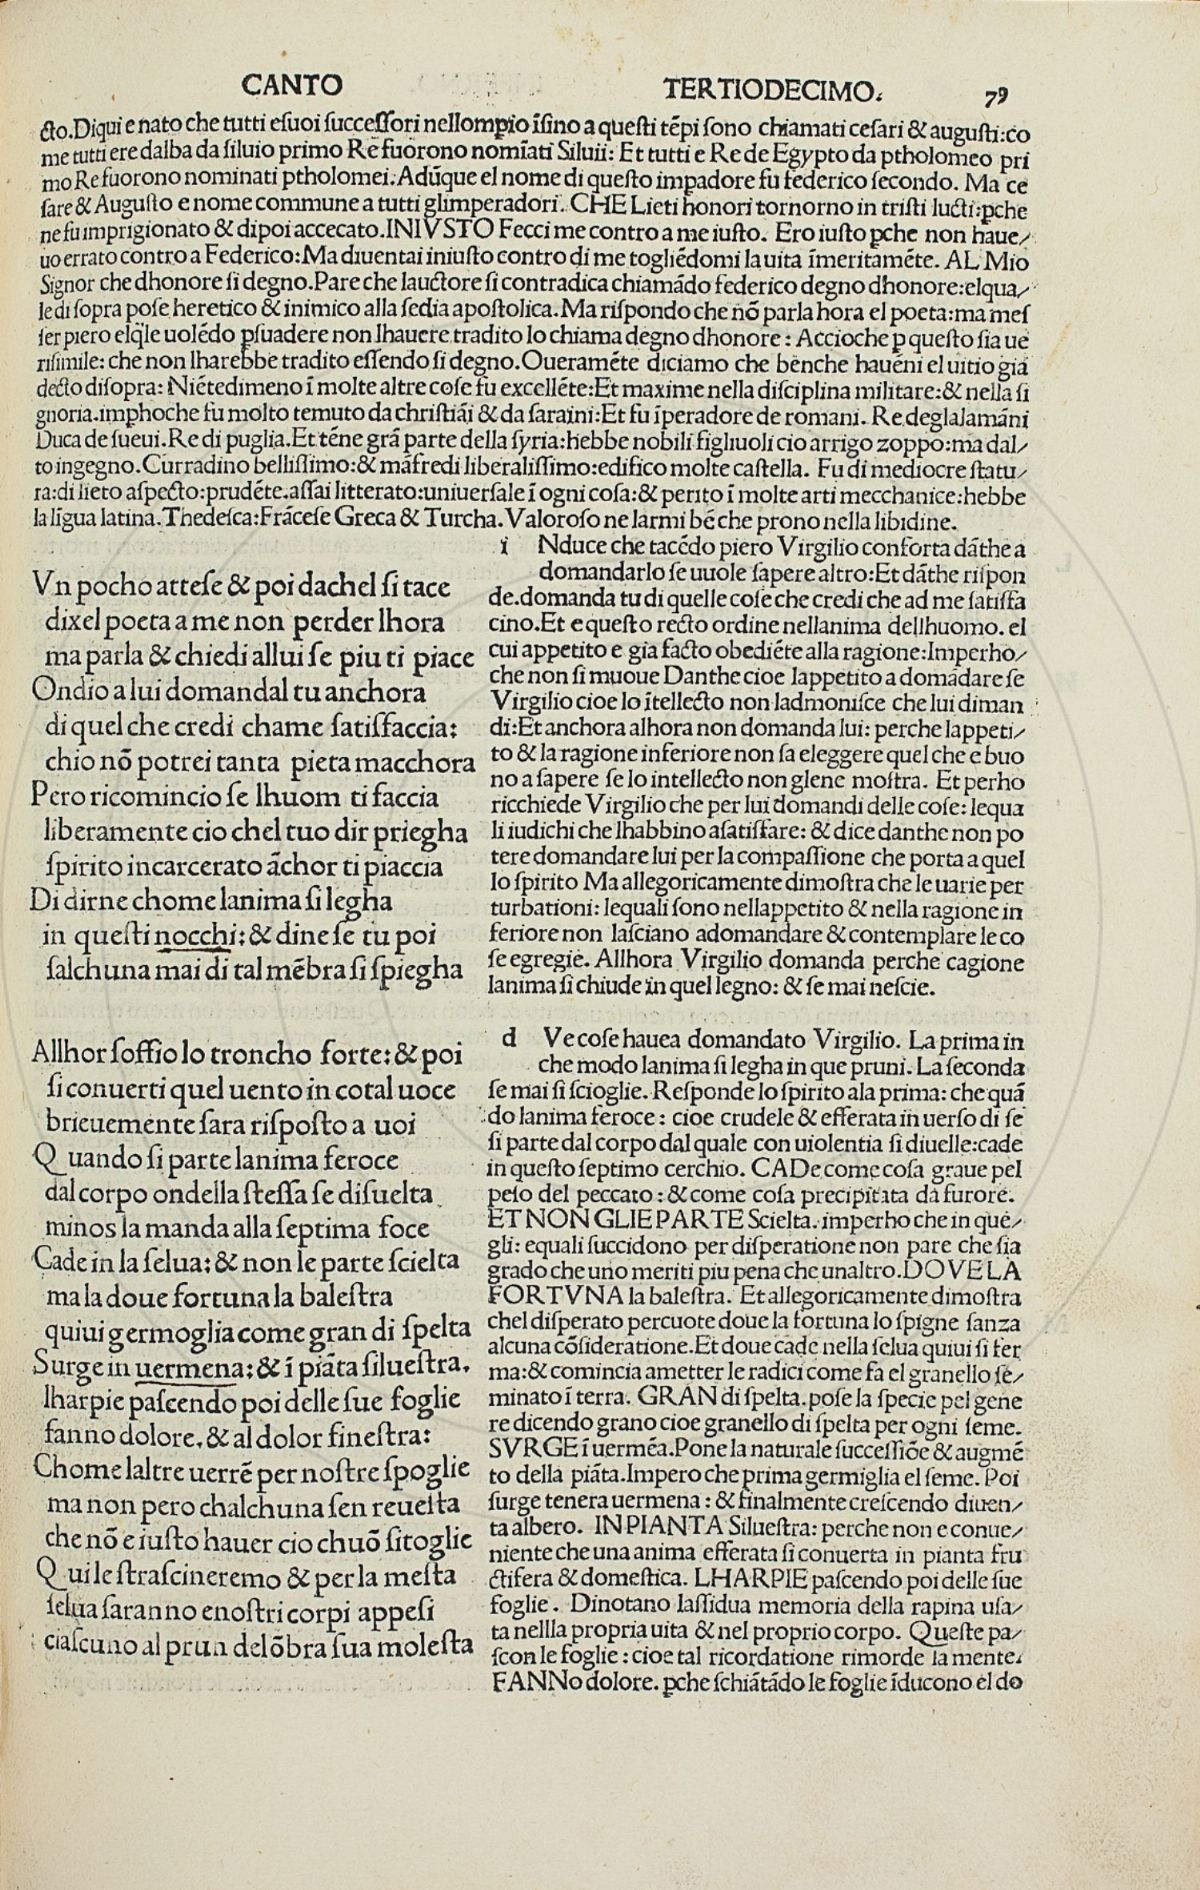 CANTO TERTIODECIMO. 79
cto.Diqui e nato che tutti eſuoi ſucceſſori nellompio ĩſino a queſti tẽpi ſono chiamati ceſari & auguſti:co
me tutti ere dalba da ſiluio primo Re fuorono nomĩati Siluii: Et tutti e Re de Egypto da ptholomeo pri
mo Re fuorono nominati ptholomei. Adũque el nome di queſto impadore fu federico ſecondo. Ma ce
ſare & Auguſto e nome commune a tutti glimperadori. CHE Lieti honori tornorno in triſti lucti:ꝑche
ne fu imprigionato & dipoi accecato.INIVSTO Fecci me contro a me iuſto. Ero iuſto ꝑche non haue/
uo errato contro a Federico:Ma diuentai iniuſto contro di me togliẽdomi la uita ĩmeritamẽte. AL Mio
Signor che dhonore ſi degno.Pare che lauctore ſi contradica chiamãdo federico degno dhonore:elqua/
le di ſopra poſe heretico & inimico alla ſedia apoſtolica. Ma riſpondo che nõ parla hora el poeta:ma meſ
ſer piero elq̃le uolẽdo ꝑſuadere non lhauere tradito lo chiama degno dhonore: Accioche ꝑ queſto ſia ue
riſimile: che non lharebbe tradito eſſendo ſi degno.Oueramẽte diciamo che bẽnche hauẽni el uitio gia
decto diſopra: Niẽtedimeno ĩ molte altre coſe fu excellẽte:Et maxime nella diſciplina militare:& nella ſi
gnoria.imꝑhoche fu molto temuto da chriſtiãi & da ſaraini:Et fu ĩperadore de romani. Re deglalamãni
Duca de ſueui.Re di puglia.Et tẽne grã parte della ſyria:hebbe nobili figliuoli cio arrigo zoppo:ma dal/
to ingegno.Curradino belliſſimo:& mãfredi liberaliſſimo:edifico molte caſtella. Fu di mediocre ſtatu/
ra:di lieto aſpecto:prudẽte.aſſai litterato:uniuerſale ĩ ogni coſa:& perito ĩ molte arti mecchanice:hebbe
la lĩgua latina.Thedeſca:Frãceſe Greca & Turcha.Valoroſo ne larmi bẽ che prono nella libidine.
Vn pocho atteſe & poi dachel ſi tace
dixel poeta a me non perder lhora
ma parla & chiedi allui ſe piu ti piace
Ondio a lui domandal tu anchora
di quel che credi chame ſatiſfaccia:
chio nõ potrei tanta pieta macchora
Pero ricomincio ſe lhuom ti faccia
liberamente cio chel tuo dir priegha
ſpirito incarcerato ãchor ti piaccia
Di dirne chome lanima ſi legha
in queſti nocchi:& dine ſe tu poi
ſalchuna mai di tal mẽbra ſi ſpiegha
Allhor ſoffio lo troncho forte:& poi
ſi conuerti quel uento in cotal uoce
brieuemente ſara riſpoſto a uoi
Quando ſi parte lanima feroce
dal corpo ondella ſteſſa ſe diſuelta
minos la manda alla ſeptima foce
Cade in la ſelua:& non le parte ſcielta
ma la doue fortuna la baleſtra
quiui germoglia come gran di ſpelta
Surge in uermena:& ĩ piãta ſilueſtra.
lharpie paſcendo poi delle ſue foglie
fanno dolore.& al dolor fineſtra:
Chome laltre uerrẽ per noſtre ſpoglie
ma non pero chalchuna ſen reueſta
che nõ e iuſto hauer cio chuõ ſitoglie
Qui le ſtraſcineremo & per la meſta
ſelua ſaranno enoſtri corpi appeſi
ciaſcuno al prun delõbra ſua moleſta
i Nduce che tacẽdo piero Virgilio conforta dãthe a
domandarlo ſe uuole ſapere altro:Et dãthe riſpon
de.domanda tu di quelle coſe che credi che ad me ſatiſfa
cino.Et e queſto recto ordine nellanima dellhuomo. el
cui appetito e gia facto obediẽte alla ragione:Imperho/
che non ſi muoue Danthe cioe lappetito a domãdare ſe
Virgilio cioe lo ĩtellecto non ladmoniſce che lui diman
di:Et anchora alhora non domanda lui: perche lappeti/
to & la ragione inferiore non ſa eleggere quel che e buo
no a ſapere ſe lo intellecto non gliene moſtra. Et perho
ricchiede Virgilio che per lui domandi delle coſe: lequa
li iudichi che lhabbino aſatiſfare: & dice danthe non po
tere domandare lui per la compaſſione che porta a quel
lo ſpirito Ma allegoricamente dimoſtra che le uarie per
turbationi: lequali ſono nellappetito & nella ragione in
feriore non laſciano adomandare & contemplare le co
ſe egregie. Allhora Virgilio domanda perche cagione
lanima ſi chiude in quel legno: & ſe mai neſcie.
d Ve coſe hauea domandato Virgilio. La prima in
che modo lanima ſi legha in que pruni. La ſeconda
ſe mai ſi ſcioglie. Reſponde lo ſpirito ala prima: che quã
do lanima feroce: cioe crudele & efferata in uerſo di ſe
ſi parte dal corpo dal quale con uiolentia ſi diuelle:cade
in queſto ſeptimo cerchio. CADe come coſa graue pel
peſo del peccato: & come coſa precipitata da furore.
ET NON GLIE PARTE Scielta. imperho che in que/
gli: equali ſuccidono per diſperatione non pare che ſia
grado che uno meriti piu pena che unaltro.DOVE LA
FORTVNA la baleſtra. Et allegoricamente dimoſtra
chel diſperato percuote doue la fortuna lo ſpigne ſanza
alcuna cõſideratione.Et doue cade nella ſelua quiui ſi fer
ma:& comincia ametter le radici come fa el granello ſe/
minato ĩ terra. GRAN di ſpelta.poſe la ſpecie pel gene
re dicendo grano cioe granello di ſpelta per ogni ſeme.
SVRGE ĩ uermẽa.Pone la naturale ſucceſſiõe & augmẽ
to della piãta.Impero che prima germiglia el ſeme. Poi
ſurge tenera uermena: & finalmente creſcendo diuen/
ta albero. IN PIANTA Silueſtra: perche non e conue/
niente che una anima efferata ſi conuerta in pianta fru
ctifera & domeſtica. LHARPIE paſcendo poi delle ſue
foglie. Dinotano laſſidua memoria della rapina uſa/
ta nellla propria uita & nel proprio corpo. Queſte pa/
ſcon le foglie: cioe tal ricordatione rimorde la mente.
FANNo dolore. ꝑche ſchiãtãdo le foglie ĩducono el do